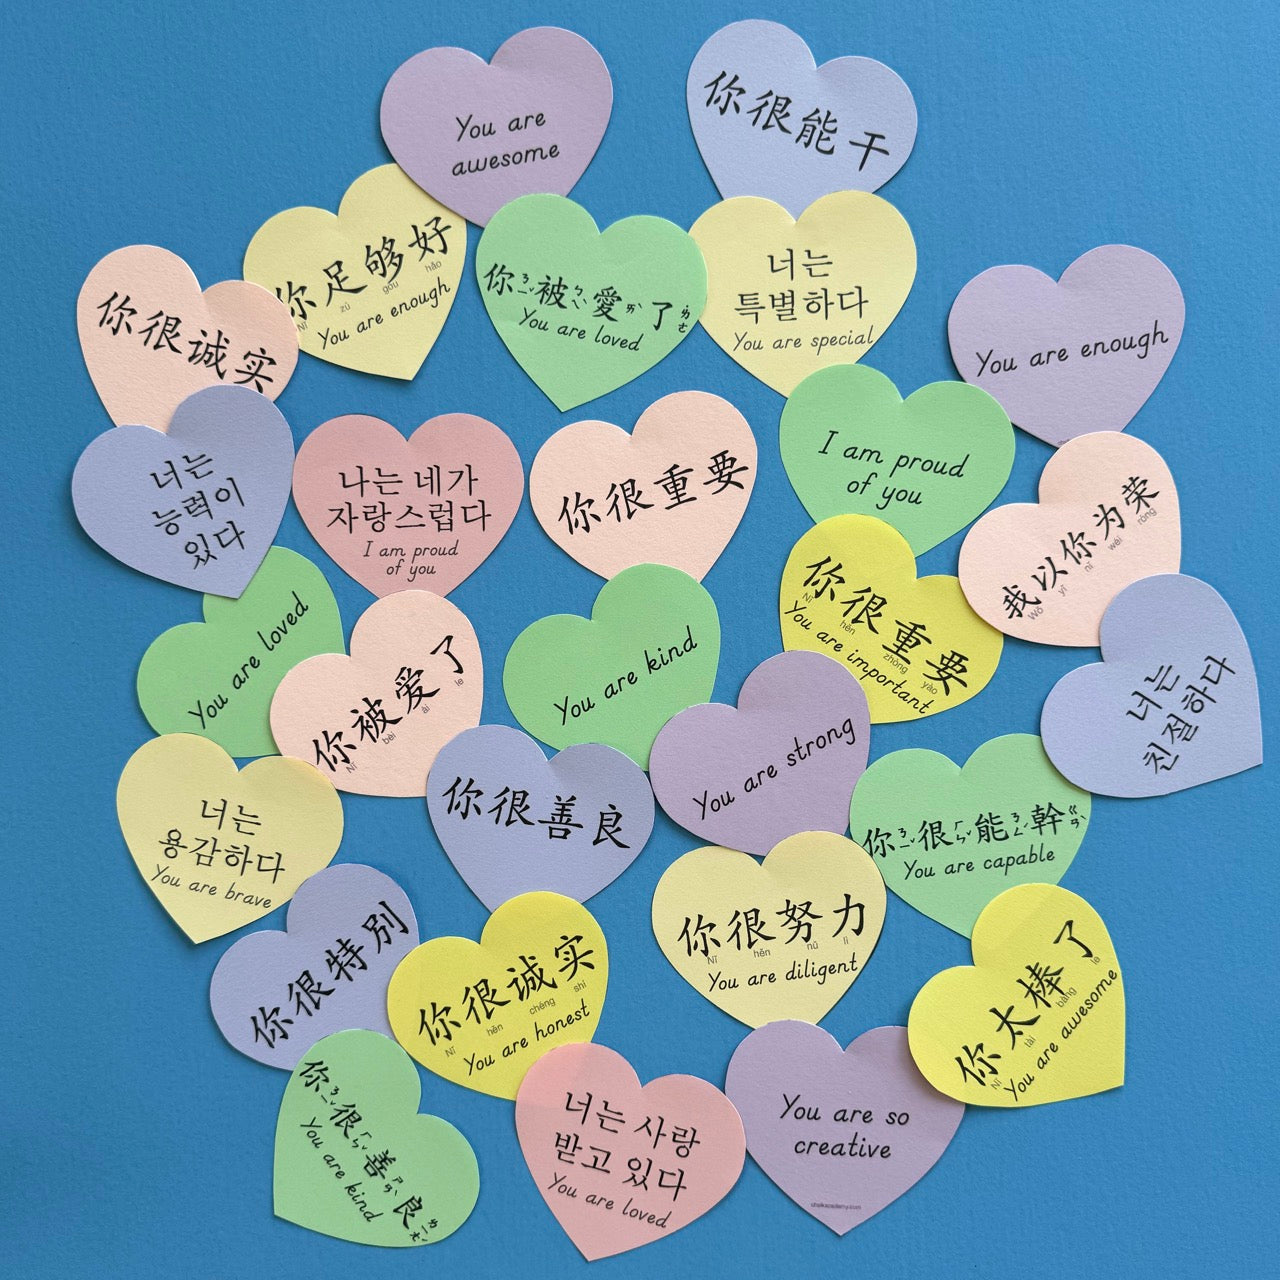 You are
awesome
你很能干
你足够好
Nǐ zú gòu hǎo
You are enough
你ㄋㄧˇ被ㄅㄟˋ愛ㄞˋ了ㄌㄜ˙
You are loved
너는
특별하다
You are special
你很诚实
You are enough
너는
능력이
있다
나는 네가
자랑스럽다
I am proud
of you
你很重要
I am proud
of you
我以你为荣
Wǒ yǐ nǐ wéi róng
You are loved
你被爱了
Nǐ bèi ài le
You are kind
你很重要
Nǐ hěn zhòng yào
You are important
너는
친절하다
You are strong
너는
용감하다
You are brave
你很善良
你ㄋㄧˇ很ㄏㄣˇ能ㄋㄥˊ幹ㄍㄢˋ
You are capable
你很特别
你很诚实
Nǐ hěn chéng shí
You are honest
你很努力
Nǐ hěn nǔ lì
You are diligent
你太棒了
Nǐ tài bàng le
You are awesome
你ㄋㄧˇ很ㄏㄣˇ善ㄕㄢˋ良ㄌㄧㄤˊ
You are kind
너는 사랑
받고 있다
You are loved
You are so
creative
chalkacademy.com